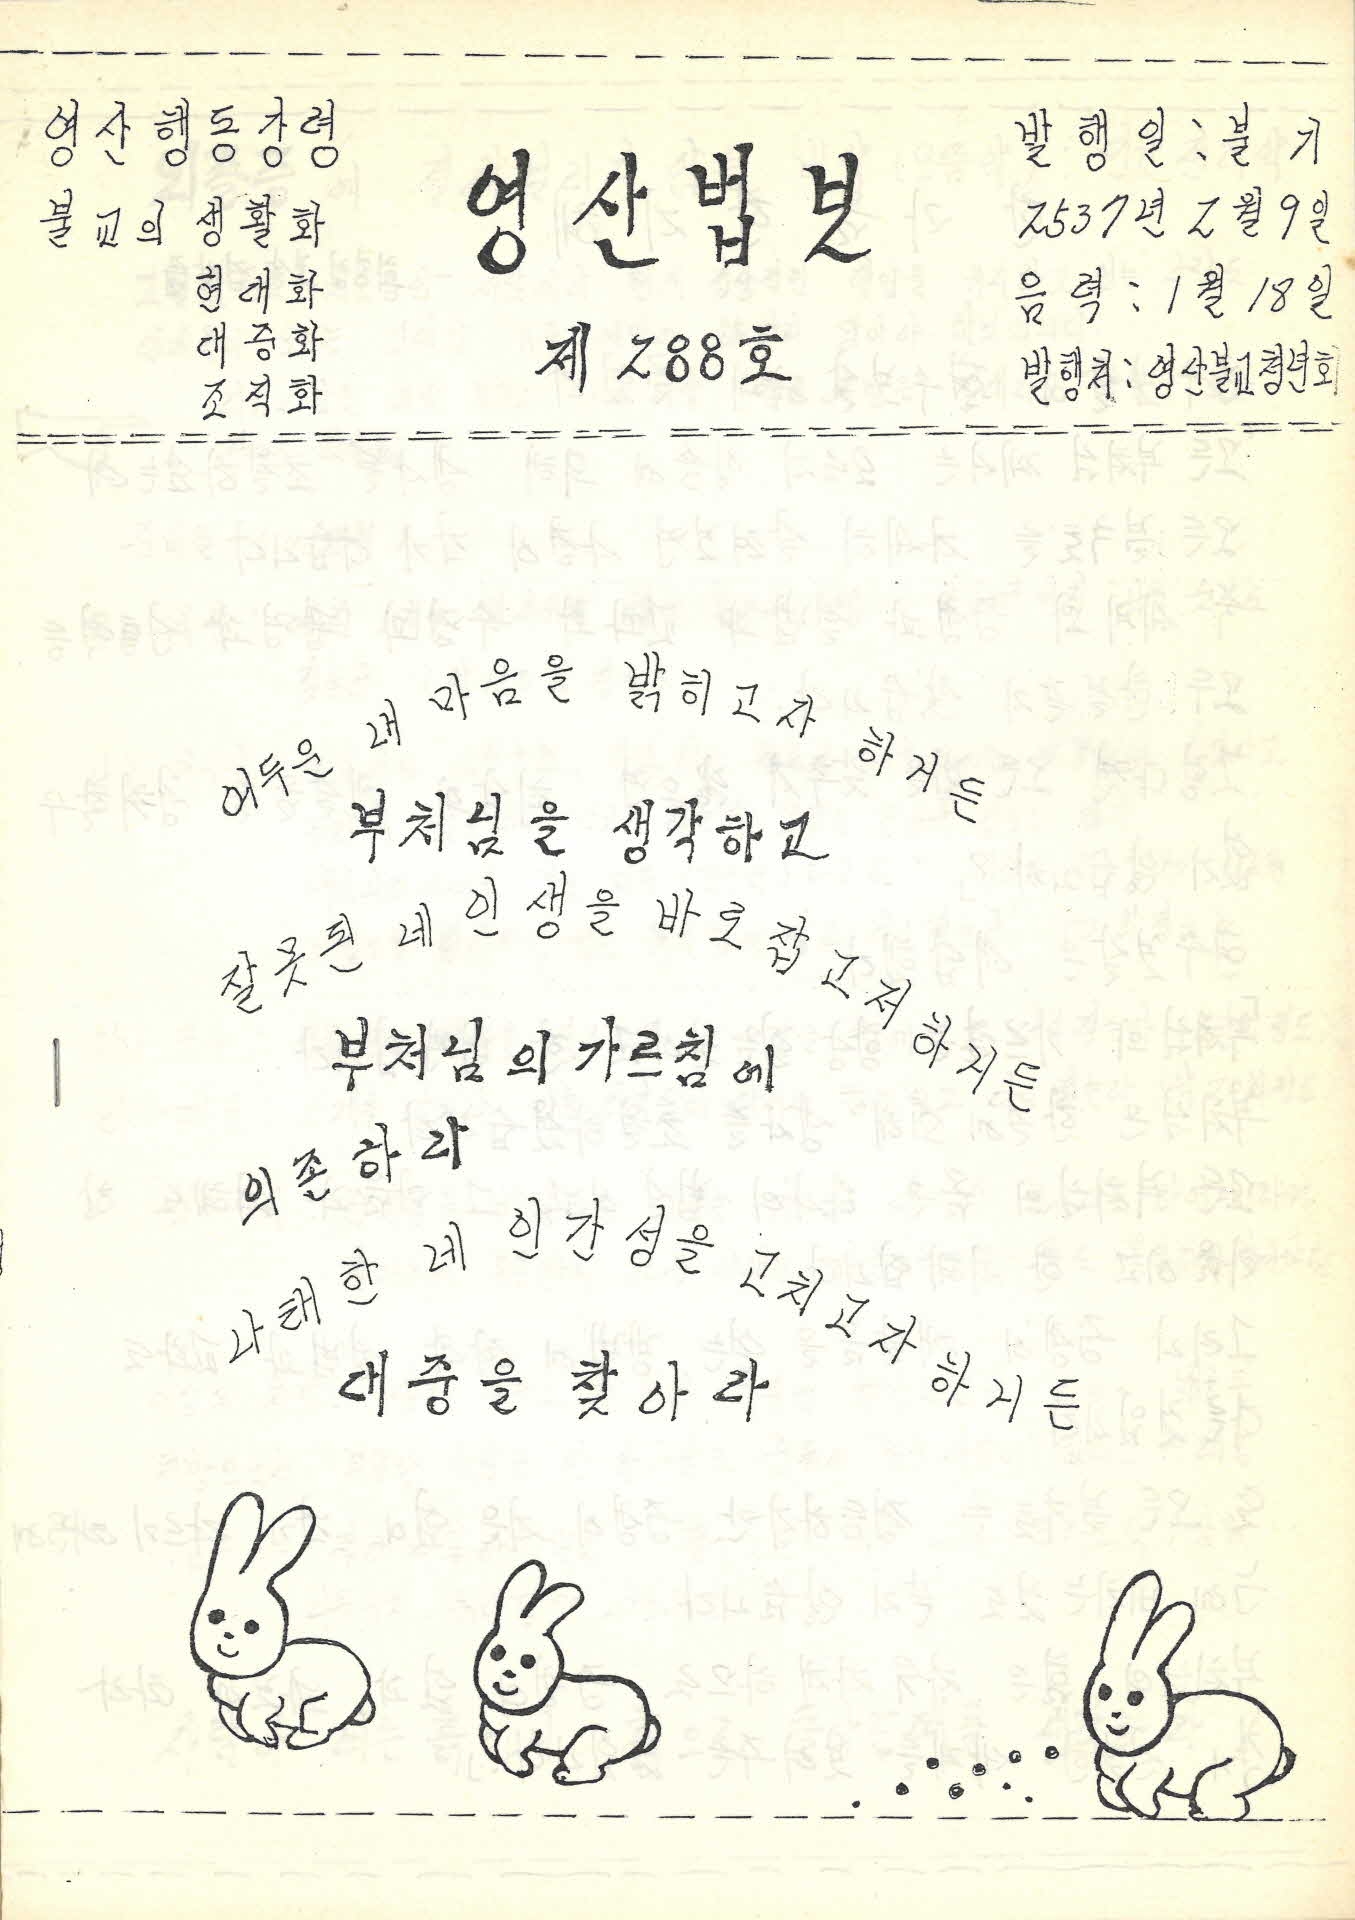 영산행동강령
불교의 생활화
현대화
대중화
조직화
영산법보
제288호
발행일:불기
2537년 2월9일
음력:1월18일
발행처:영산불교청년회
어두운 내 마음을 밝히고자 하거든
부처님을 생각하고
잘못된 네 인생을 바로잡고저하거든
부처님의 가르침에
의존하라
나태한 네 인간성을 고치고자 하거든
대중을 찾아라